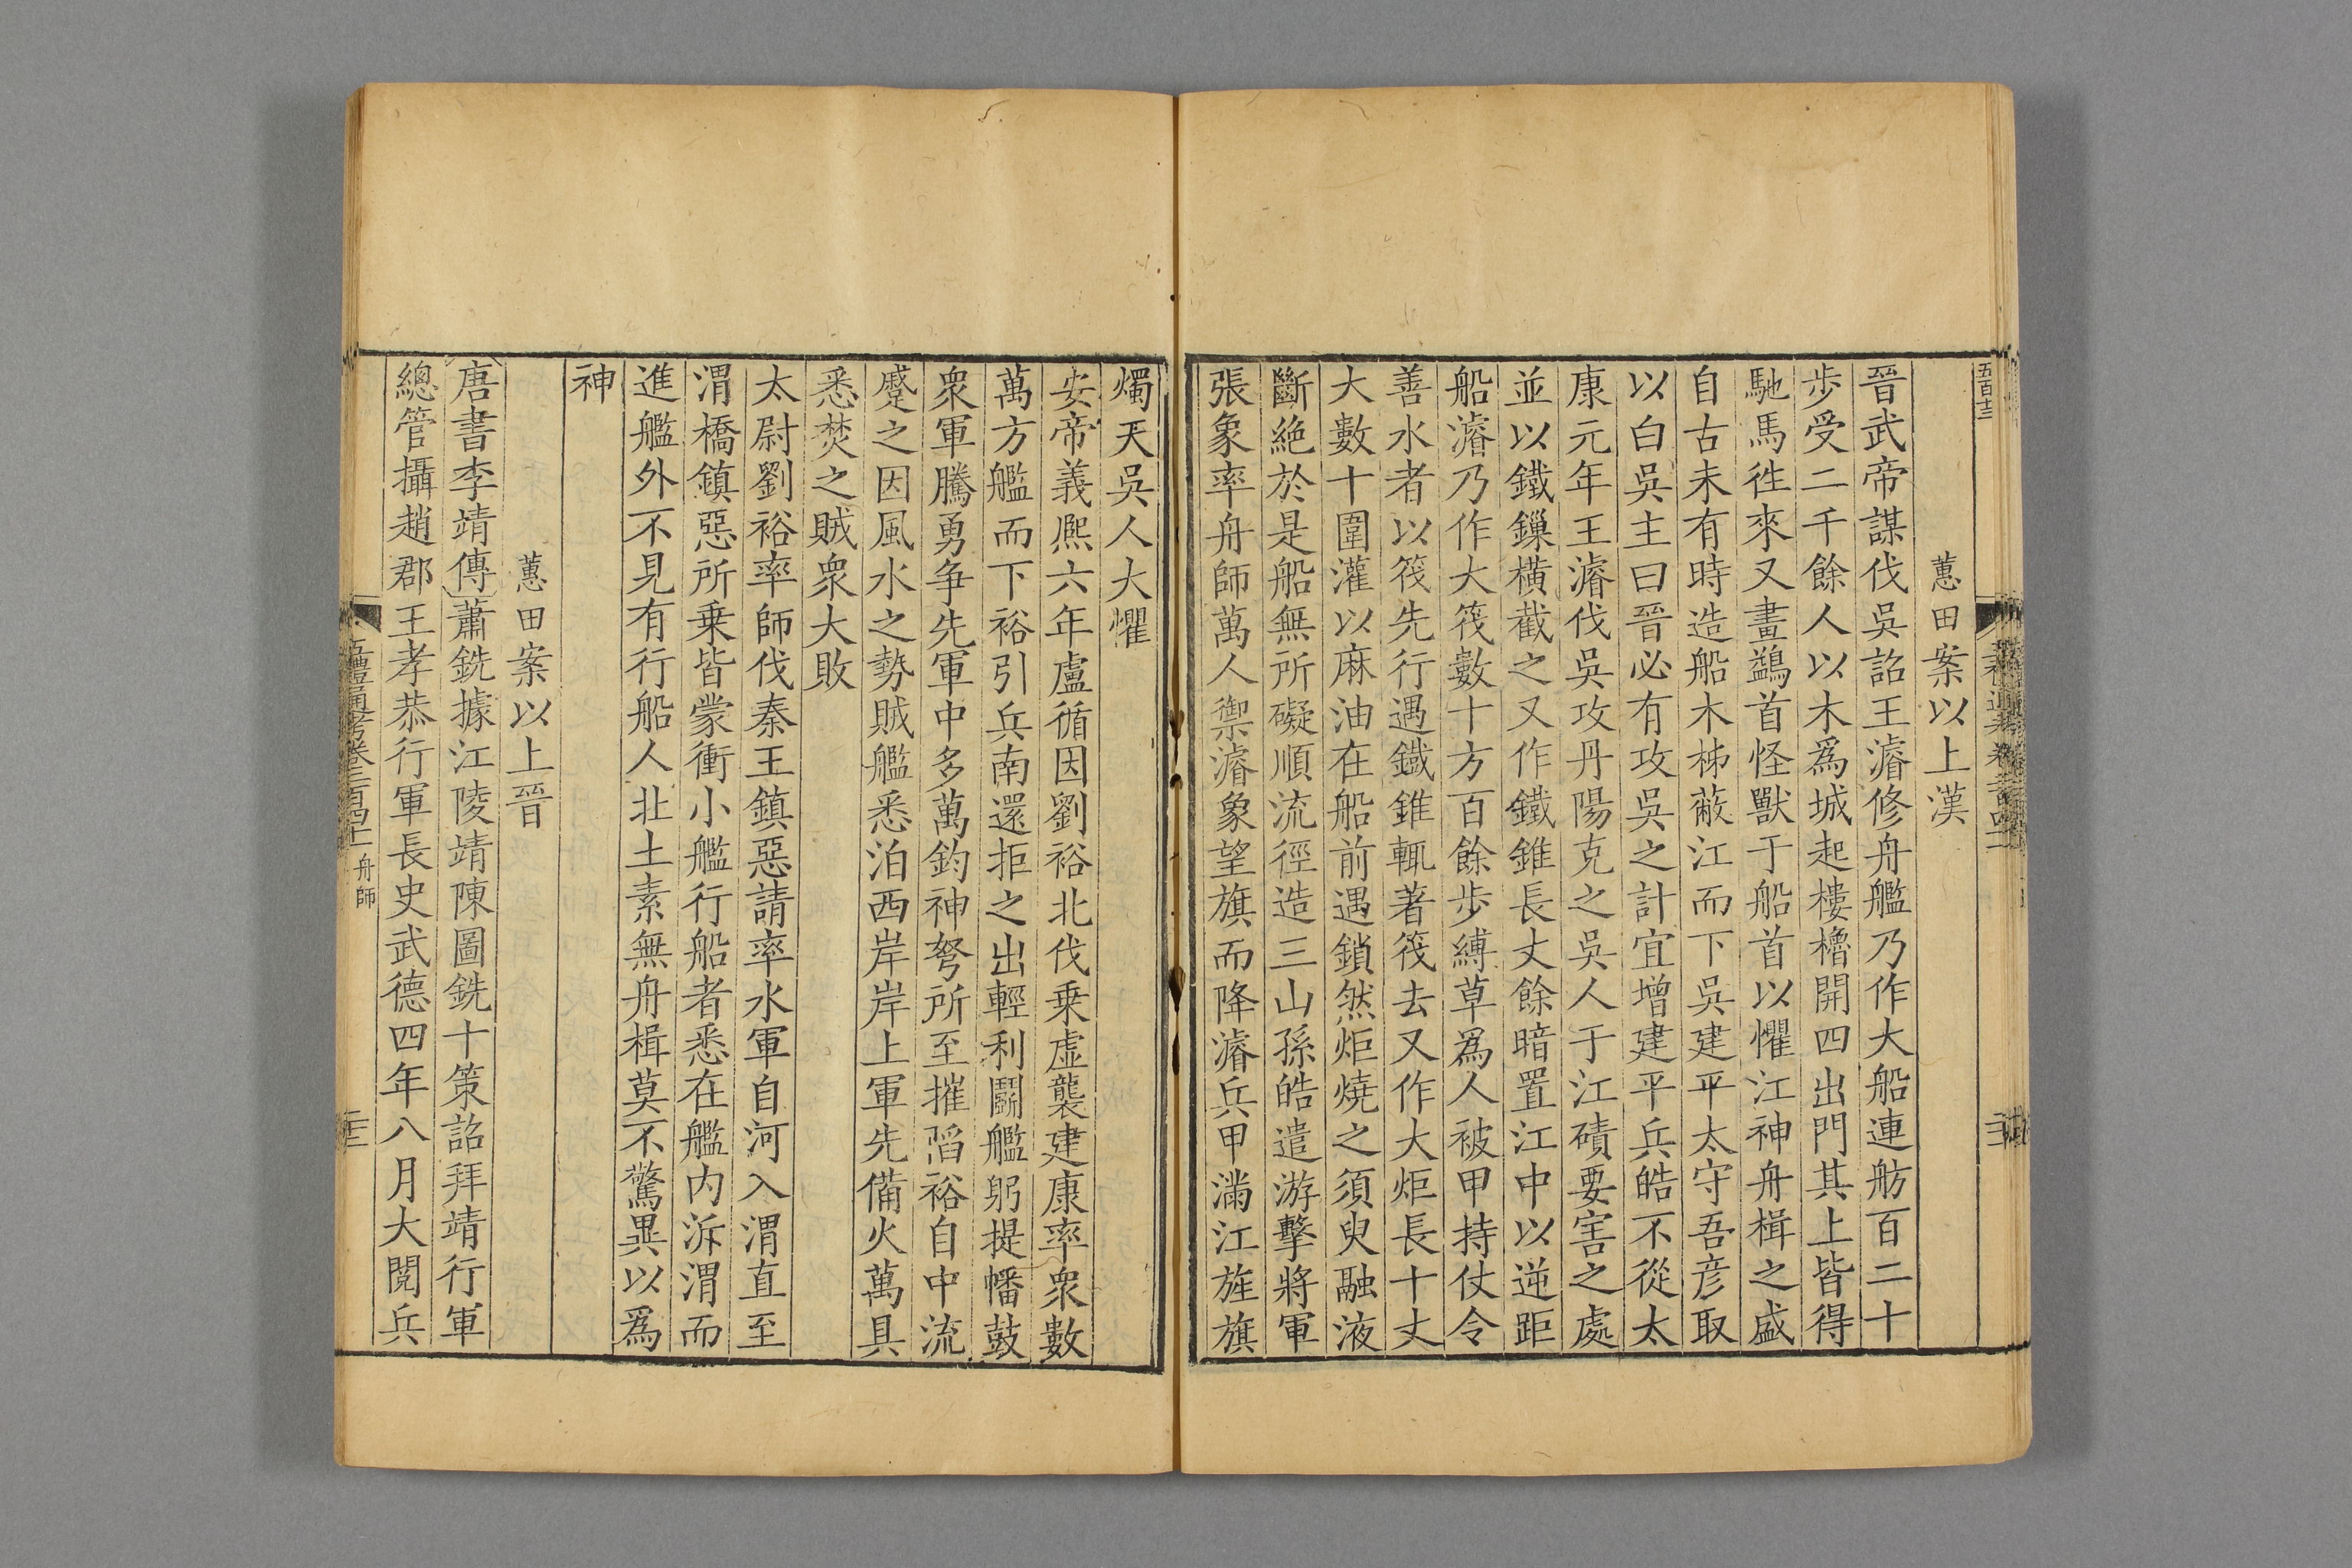 蕙田案以上漢
晉武帝謀伐吳詔王濬修舟艦乃作大船連舫百二十
步受二千餘人以木爲城起樓櫓開四出門其上皆得
馳馬徃來又畫鷁首怪獸于船首以懼江神舟楫之盛
自古未有時造船木柹蔽江而下吳建平太守吾彦取
以白吳主曰晉必有攻吳之計宜增建平兵皓不從太
康元年王濬伐吳攻丹陽克之吳人于江磧要害之處
並以鐵鏁橫截之又作鐵錐長丈餘暗置江中以逆距
船濬乃作大筏數十方百餘步縛草爲人被甲持仗令
善水者以筏先行遇鐵錐輒著筏去又作大炬長十丈
大數十圍灌以麻油在船前遇鎖然炬燒之須臾融液
斷絶於是船無所礙順流徑造三山孫皓遣游擊將軍
張象率舟師萬人禦濬象望旗而降濬兵甲滿江旌旗
燭天吳人大懼
安帝義熙六年盧循因劉裕北伐乗虛襲建康率衆數
萬方艦而下裕引兵南還拒之出輕利鬭艦躬提幡鼓
衆軍騰勇争先軍中多萬鈞神弩所至摧䧟裕自中流
蹙之因風水之勢賊艦悉泊西岸岸上軍先備火萬具
悉焚之賊衆大敗
太尉劉裕率師伐秦王鎮惡請率水軍自河入渭直至
渭橋鎮惡所乗皆蒙衝小艦行船者悉在艦内泝渭而
進艦外不見有行船人北土素無舟楫莫不驚異以爲
神
蕙田案以上晉
唐書李靖傳蕭銑據江陵靖陳圖銑十策詔拜靖行軍
總管攝趙郡王孝恭行軍長史武德四年八月大閱兵
五禮通考卷二百四十二 舟師